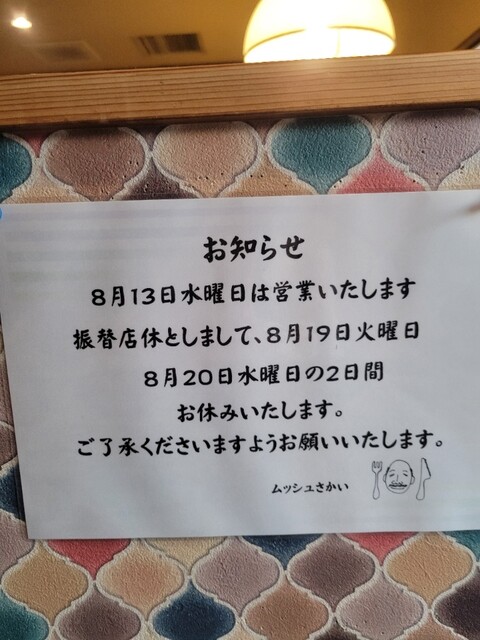 お知らせ
8月13日水曜日は営業いたします
振替店休としまして、8月19日火曜日
8月20日水曜日の2日間
お休みいたします。
ご了承くださいますようお願いいたします。
ムッシュさかい